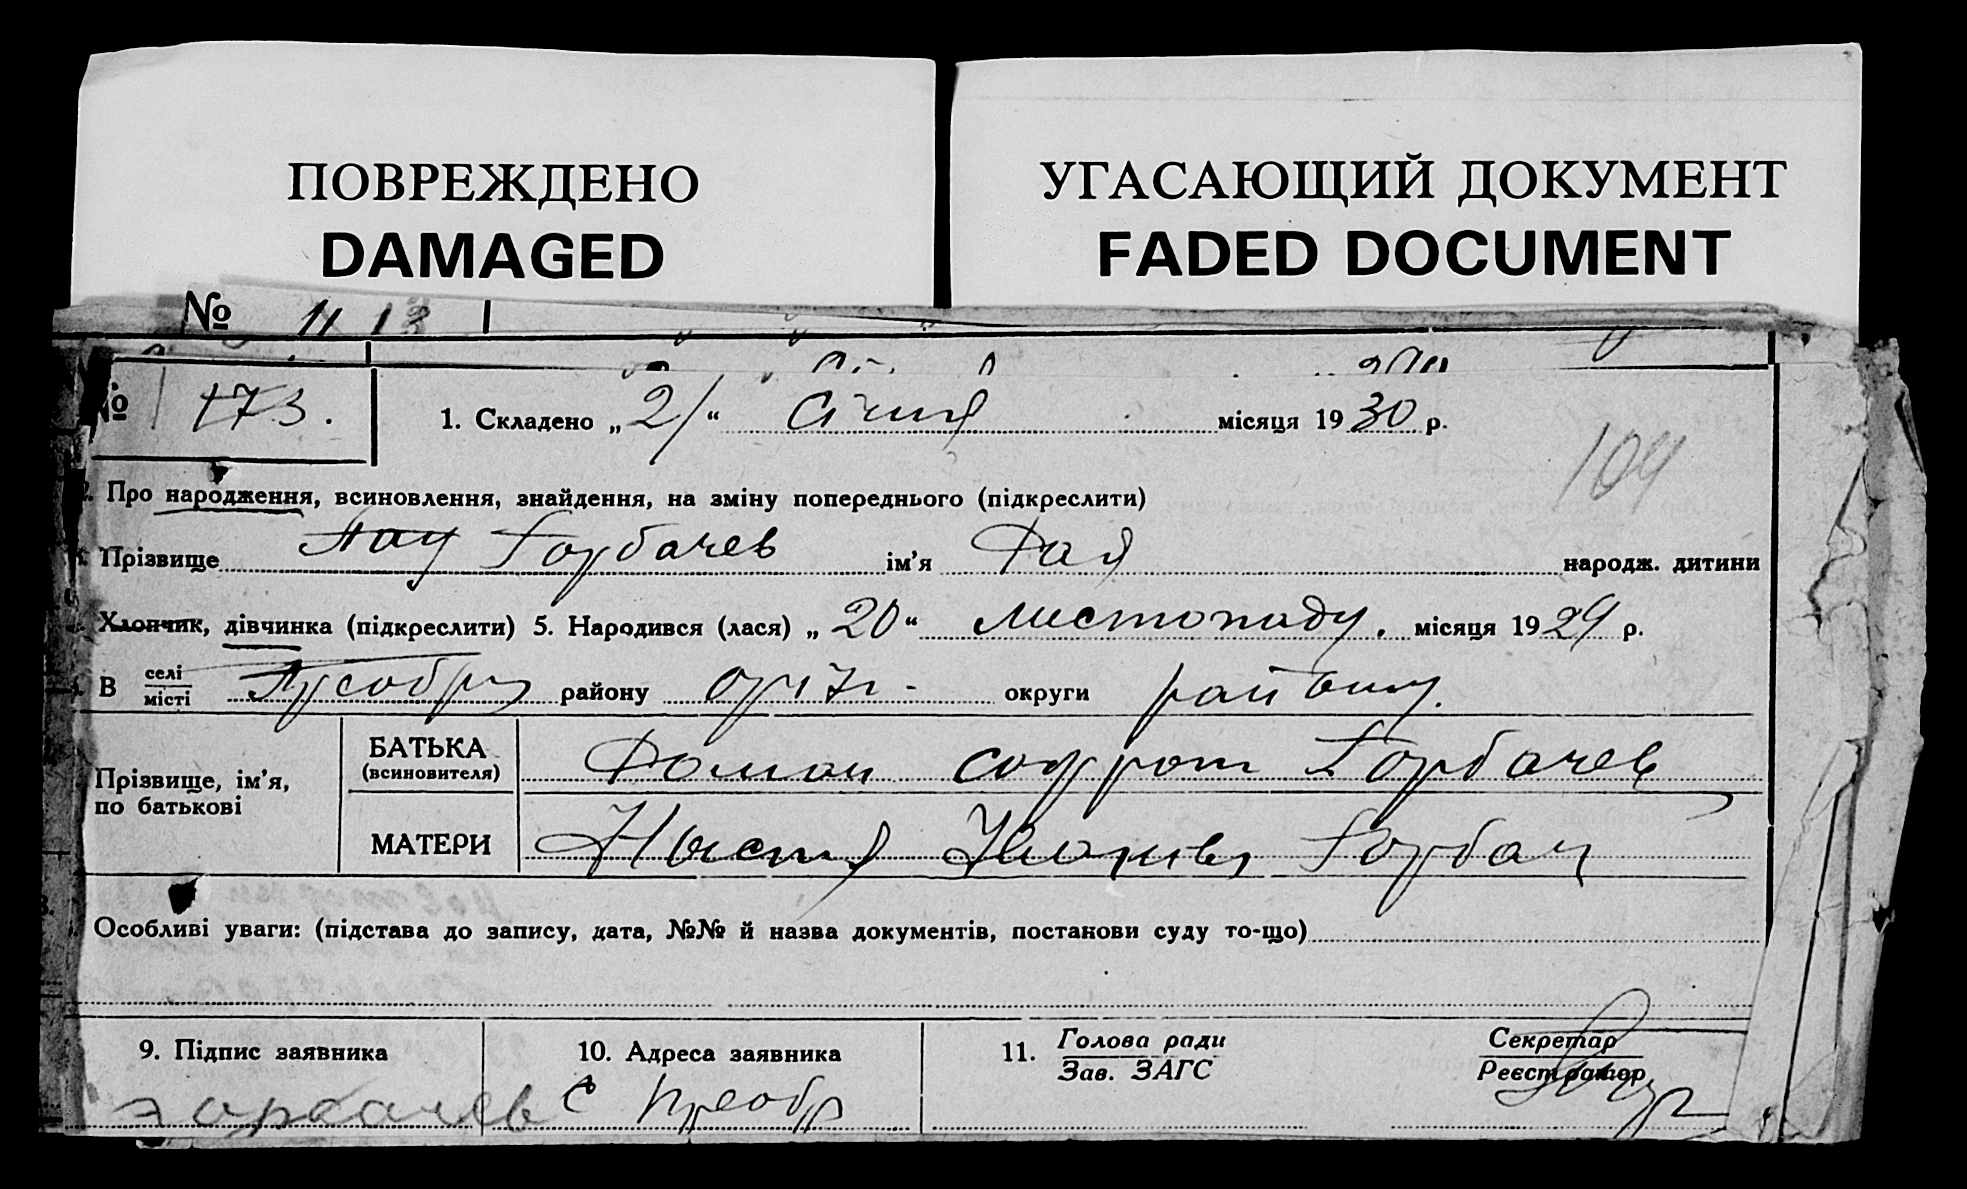 ПОВРЕЖДЕНО
DAMAGED
УГАСАЮЩИЙ ДОКУМЕНТ
FADED DOCUMENT
№ 1113
№ 173.
1. Складено „2/“ Січня місяця 1930 р.
109
Про народження, всиновлення, знайдення, на зміну попереднього (підкреслити)
Прізвище Горбачев ім’я Рая народж. дитини
Хлопчик, дівчинка (підкреслити) 5. Народився (лася) „20“ листопаду. місяця 1929 р.
В селі місті району округи
Прізвище, ім’я, по батькові
БАТЬКА (всиновителя) Роман Горбачев
МАТЕРИ Горбач
Особливі уваги: (підстава до запису, дата, №№ й назва документів, постанови суду то-що)
9. Підпис заявника
10. Адреса заявника
11. Голова ради Зав. ЗАГС
Секретар Реєстратор
горбачев
с Преобр